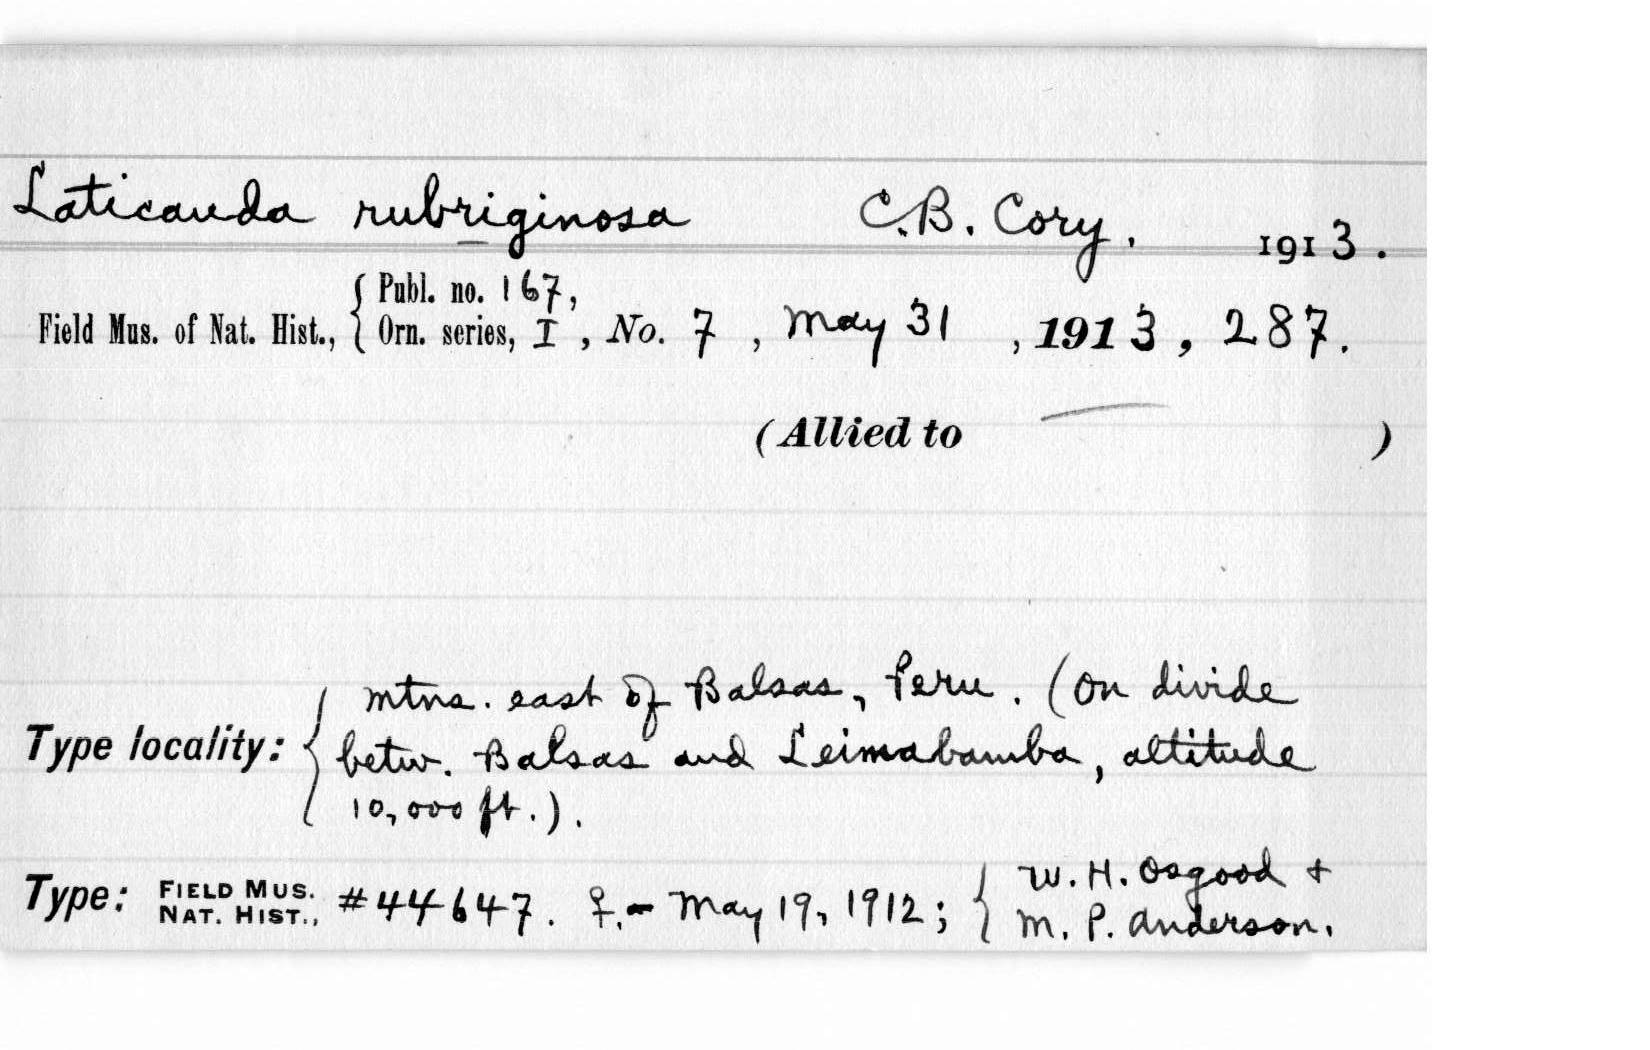 Laticauda rubriginosa C.B. Cory. 1913.
Field Mus. of Nat. Hist., { Publ. no. 167,
Orn. series, I, No. 7, May 31, 1913, 287.
(Allied to — )
Type locality: { mtns. east of Balsas, Peru. (On divide
betw. Balsas and Leimabamba, altitude
10,000 ft.).
Type: FIELD MUS. NAT. HIST., #44647. ♀.- May 19, 1912; { W. H. Osgood +
M. P. Anderson.